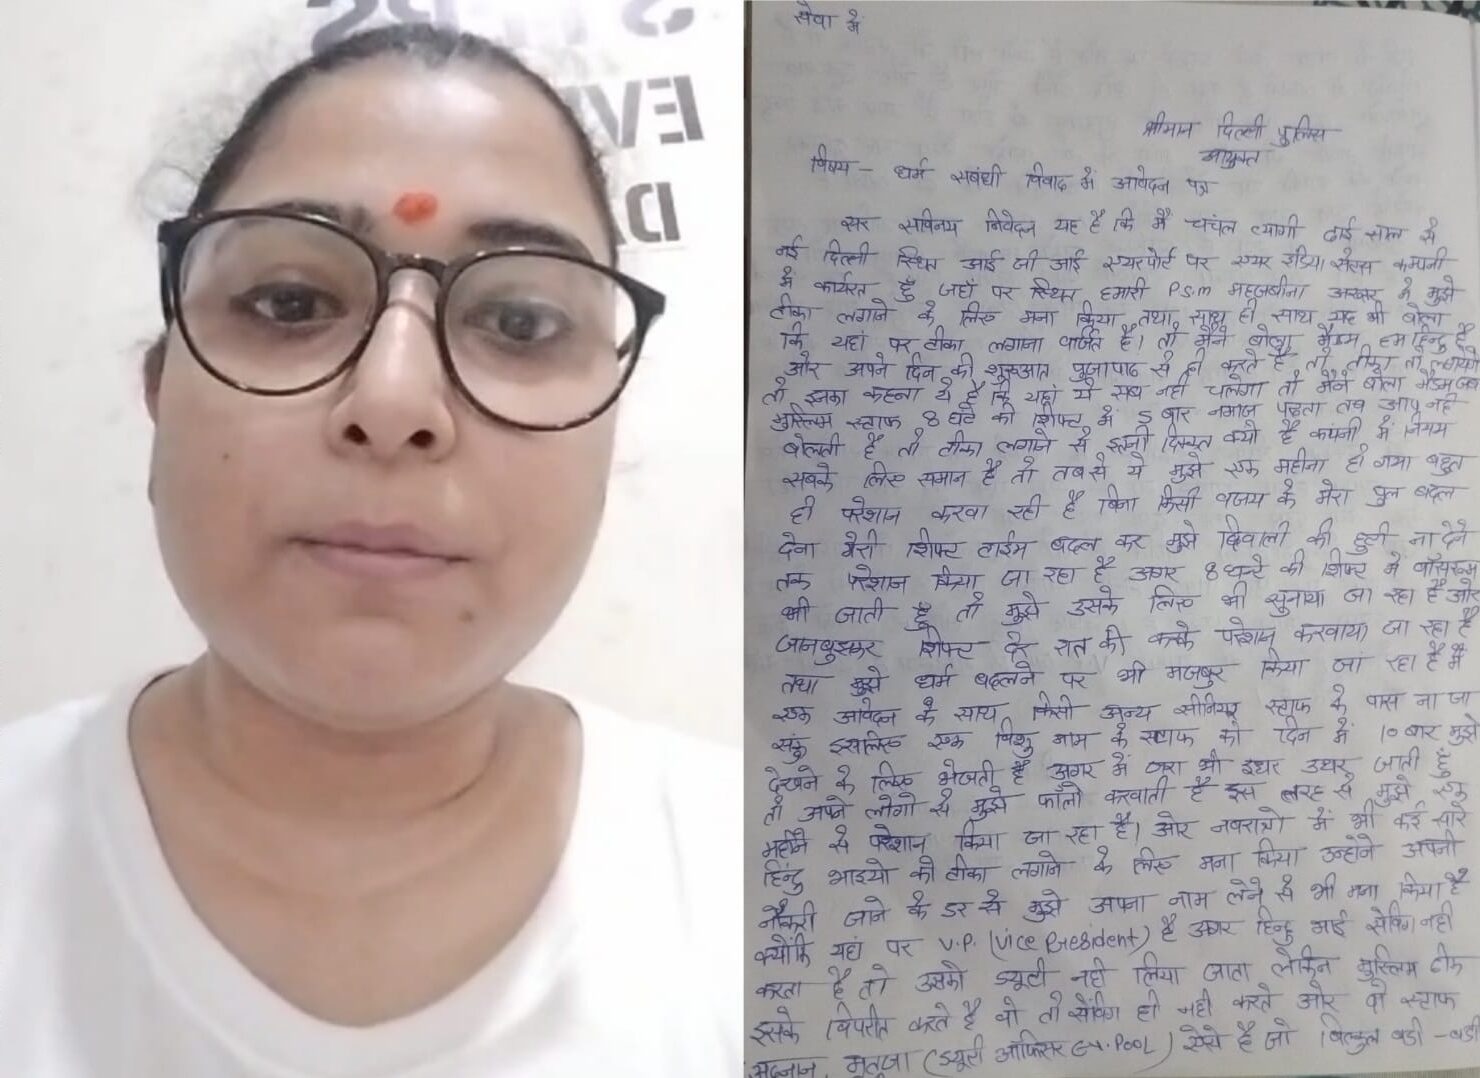 EVE
DA
सेवा में
श्रीमान दिल्ली पुलिस
आयुक्त
विषय - धर्म सबंधी विवाद में आवेदन पत्र
सर सविनय निवेदन यह है कि मैं चचंल त्यागी ढाई साल से
नई दिल्ली स्थित आई जी आई एयरपोर्ट पर एयर इंडिया सैट्स कम्पनी
में कार्यरत हुँ जहाँ पर स्थित हमारी P.S.M महजबीना अख्तर ने मुझे
टीका लगाने के लिए मना किया तथा साथ ही साथ यह भी बोला
कि यहां पर टीका लगाना वर्जित है। तो मैंने बोला मैडम हम हिन्दु है
और अपने दिन की शुरुआत पुजा पाठ से ही करते है तो टीका तो लगायेगे
तो इनका कहना ये है कि यहां ये सब नही चलेगा तो मैने बोला मैडम जब
मुस्लिम स्टाफ 8 घंटे की शिफ्ट में 5 बार नमाज पढता तब आप नही
बोलती है तो टीका लगाने से इतनी दिक्कत क्यो है कंपनी में नियम
सबके लिए समान है तो तब से ये मुझे एक महीना हो गया बहुत
ही परेशान करवा रही है बिना किसी वजय के मेरा पुल बदल
देना मेरी शिफ्ट टाईम बदल कर मुझे दिवाली की छुटी ना देने
तक परेशान किया जा रहा है अगर 8 घन्टे की शिफ्ट में वॉशरूम
भी जाती हुँ तो मुझे उसके लिए भी सुनाया जा रहा है और
जानबुझकर शिफ्ट देर रात की करके परेशान करवाया जा रहा है
तथा मुझे धर्म बदलने पर भी मजबुर किया जा रहा है मैं
एक आवेदन के साथ किसी अन्य सीनियर स्टाफ के पास ना जा
सकुं इसलिए एक विशु नाम के स्टाफ को दिन में 10 बार मुझे
देखने के लिए भेजती है अगर में जरा भी इधर उधर जाती हुँ
तो अपने लोगो से मुझे फॉलो करवाती है इस तरह से मुझे एक
महीने से परेशान किया जा रहा है। और नवरात्रो में भी कई सारे
हिन्दु भाइयो को टीका लगाने के लिए मना किया उन्होने अपनी
नौकरी जाने के डर से मुझे अपना नाम लेने से भी मना किया है
क्योंकि यहां पर V.P. (Vice President) है अगर हिन्दु भाई सेविंग नही
करता है तो उसको ड्युटी नही लिया जाता लेकिन मुस्लिम ठीक
इसके विपरीत करते है वो तो सेविंग ही नही करते और वो स्टाफ
अदनान, मुतुजा (ड्युटी ऑफिसर POOL) ऐसे है जो बिल्कुल बडी - बडी